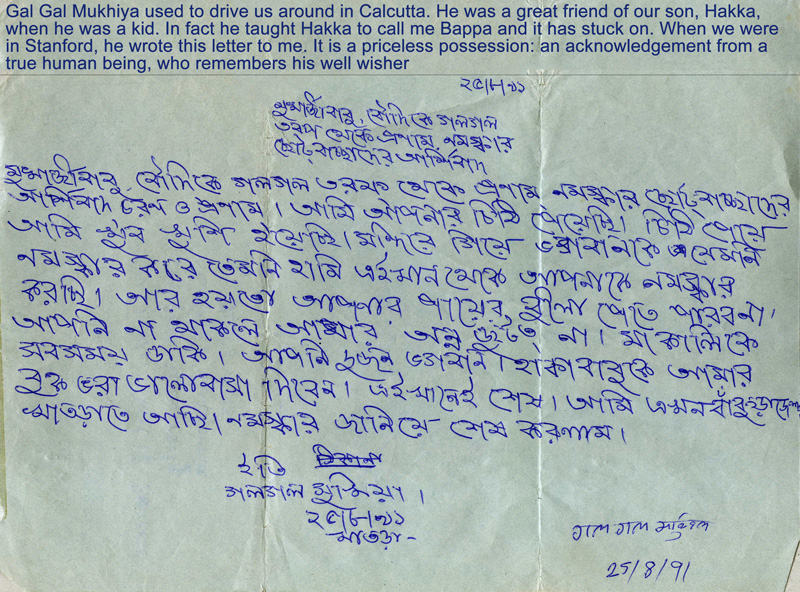 Gal Gal Mukhiya used to drive us around in Calcutta. He was a great friend of our son, Hakka,
when he was a kid. In fact he taught Hakka to call me Bappa and it has stuck on. When we were
in Stanford, he wrote this letter to me. It is a priceless possession: an acknowledgement from a
true human being, who remembers his well wisher
২৫/৮/৯১
মুখার্জীবাবু, বৌদিকে গলগল
তরফ থেকে প্রণাম, নমস্কার
ছোট বাচ্ছাদের আর্শিবাদ
মুখার্জীবাবু, বৌদিকে গলগল তরফ থেকে প্রণাম নমস্কার ছোট বাচ্ছাদের
আর্শিবাদ চরন ও প্রণাম। আমি আপনার চিঠি পেয়েছি। চিঠি পেয়ে
আমি খুব খুশি হয়েছি। মন্দিরে গিয়ে ভগবানকে যেমনি
নমস্কার করে তেমনি হামি এইখান থেকে আপনাকে নমস্কার
করছি। আর হয়তো আপনার পায়ের ধুলা পেতে পারবনা।
আপনি না থাকলে আমার অন্ন জুটত না। মা কালিকে
সবসময় ডাকি। আপনি দুজন ভগবান। হাকাবাবুকে আমার
বুক ভরা ভালোবাসা দিবেন। এইখানেই শেষ। আমি এখন
খাতড়াতে আছি। নমস্কার জানিয়ে শেষ করলাম।
ইতি
গলগল মুখিয়া।
২৫/৮/৯১
খাতড়া-
গাল গাল
25/8/91